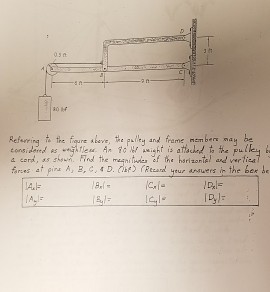 D
0.5 ft
2 ft
A
B
C
80 lbf
Referring to the figure above, the pulley and frame members may be
considered as weightless. An 80 lbf weight is attached to the pulley by
a cord, as shown. Find the magnitudes of the horizontal and vertical
forces at pins A, B, C, & D. (lbf) (Record your answers in the box be
|Ax|= |Bx|= |Cx|= |Dx|=
|Ay|= |By|= |Cy|= |Dy|=